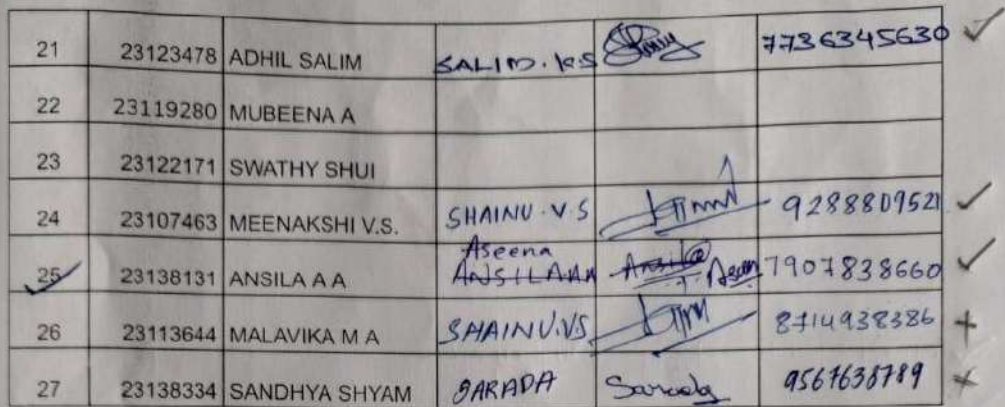 21 23123478 ADHIL SALIM SALIM. K.S 7736345630
22 23119280 MUBEENA A
23 23122171 SWATHY SHUI
24 23107463 MEENAKSHI V.S. SHAINU.V.S 9288809521
Aseena
25 23138131 ANSILA A A ANSILA AA Ansila Aseen 7907838660
26 23113644 MALAVIKA M A SHAINU.V.S. 8714938386
27 23138334 SANDHYA SHYAM SARADA Sarada 9567638789